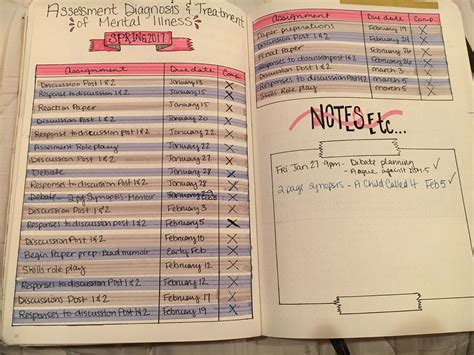 Assessment Diagnosis & Treatment
of Mental Illness
SPRING 2017
Assignment Due date Comp.
Discussion Post 1 & 2 January 13 X
Response to discussion 1 & 2 January 15 X
Reaction Paper January 15 X
Discussion Post 1 & 2 January 20 X
Response to discussion post 1 & 2 January 22 X
Assessment Role play January 22 X
Discussion Post 1 & 2 January 27 X
Debate January 28 X
Responses to discussion Post 1 & 2 January 28 X
Debate - 2 pg Synopsis - Memoir January 29 X
Discussion Post 1 & 2 February 3 X
Responses to discussion post 1 & 2 February 5 X
Discussion Post 1 & 2 February 10 X
Begin Paper prep - Read memoir Early Feb X
Skills role play February 12 X
Responses to discussion Post 1 & 2 February 12 X
Discussions Post 1 & 2 February 17 X
Responses to discussion Post 1 & 2 February 19 X
Assignment Due date Comp.
Paper preparations February 19 X
Discussion Post 1 & 2 February 24 X
Paper February 26 X
Responses to discussion Post 1 & 2 February 26 X
Discussion Post 1 & 2 March 3 X
Responses to discussion Post 1 & 2 March 5 X
Skill Role play March 5 X
NOTES Etc...
Fri Jan 27 9pm - Debate planning
- Argue against DSM-5 ✓
2 page synopsis - A Child Called It Feb 5 ✓